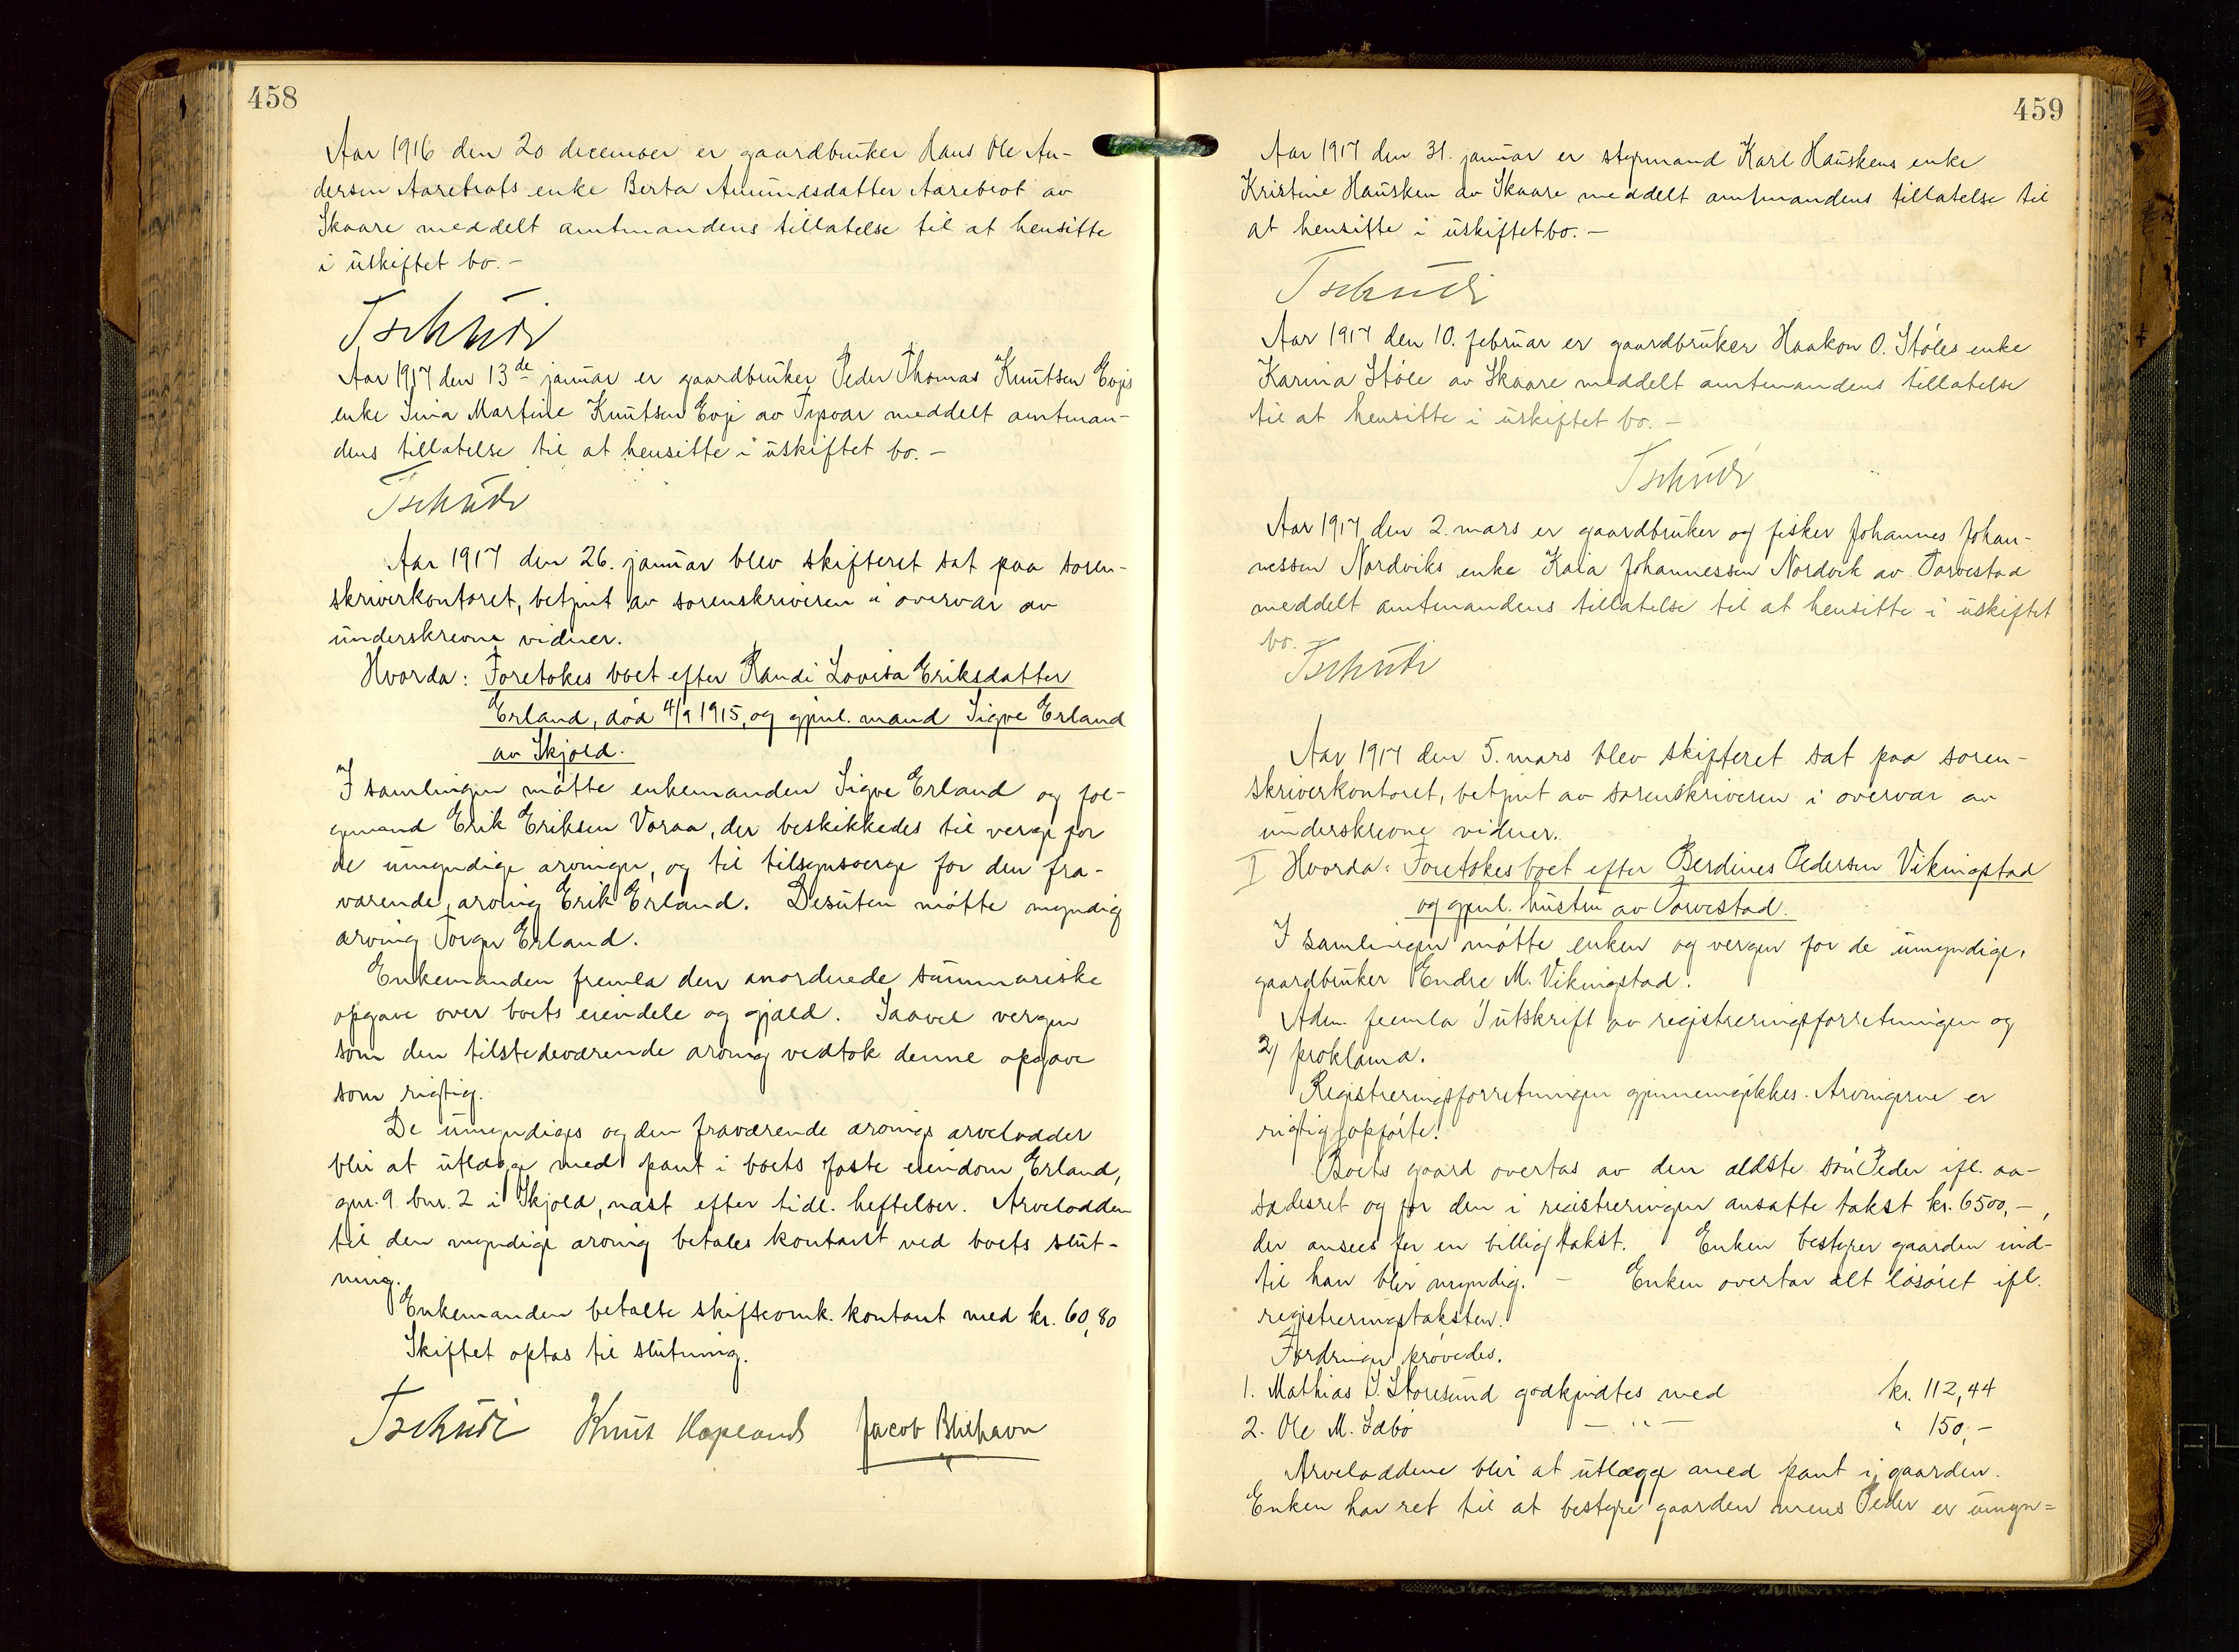 458
Aar 1916 den 20 december er gaardbruker Hans Ole An-
dersen Aarebrots enke Berta Amundsdatter Aarebrot av
Skaare meddelt amtmandens tillatelse til at hensitte
i uskiftet bo. –
Tschudi
Aar 1917 den 13de januar er gaardbruker Peder Thomas Knutsen Evjes
enke Sina Martine Knutsen Evje av Tysvær meddelt amtman-
dens tillatelse til at hensitte i uskiftet bo. –
Tschudi
Aar 1917 den 26. januar blev skifteret sat paa soren-
skriverkontoret, betjent av sorenskriveren i overvær av
underskrevne vidner.
Hvorda: Foretokes boet efter Randi Lovisa Eriksdatter
Erland, død 4/9 1915, og gjenl. mand Sigve Erland
av Skjold.
I samlingen møtte enkemanden Sigve Erland og føl-
gemand Erik Eriksen Voraa, der beskikkedes til verge for
de umyndige arvinger, og til tilsynsverge for den fra-
værende arving Erik Erland. Desuten møtte myndig
arving Torger Erland.
Enkemanden fremla den anordnede summariske
opgave over boets eiendele og gjæld. Saavel vergen
som den tilstedeværende arving vedtok denne opgave
som rigtig.
De umyndiges og den fraværende arvings arvelodder
blir at utlægge med pant i boets faste eiendom Erland,
gnr. 9 bnr. 2 i Skjold, næst efter tidl. heftelser. Arvelodden
til den myndige arving betales kontant ved boets slut-
ning.
Enkemanden betalte skifteomk. kontant med kr. 60,80
Skiftet optas til slutning.
Tschudi Knut Hapland Jacob Blikhavn
459
Aar 1917 den 31. januar er styrmand Karl Hauskens enke
Kristine Hausken av Skaare meddelt amtmandens tillatelse til
at hensitte i uskiftet bo. –
Tschudi
Aar 1917 den 10. februar er gaardbruker Haakon O. Støles enke
Karina Støle av Skaare meddelt amtmandens tillatelse
til at hensitte i uskiftet bo. –
Tschudi
Aar 1917 den 2. mars er gaardbruker og fisker Johannes Johan-
nessen Nordviks enke Kaia Johannessen Nordvik av Torvestad
meddelt amtmandens tillatelse til at hensitte i uskiftet
bo.
Tschudi
Aar 1917 den 5. mars blev skifteret sat paa soren-
skriverkontoret, betjent av sorenskriveren i overvær av
underskrevne vidner.
I Hvorda: Foretokes boet efter Berdines Pedersen Vikingstad
og gjenl. hustru av Torvestad.
I samlingen møtte enken og vergen for de umyndige,
gaardbruker Endre M. Vikingstad.
Adm. fremla 1) utskrift av registreringsforretningen og
2) proklama.
Registreringsforretningen gjennemgikkes. Arvingerne er
rigtig opførte.
Boets gaard overtas av den ældste søn Peder ifl. aa-
sædesret og for den i registreringen ansatte takst kr. 6500,–,
der ansees for en billig takst. Enken bestyrer gaarden ind-
til han blir myndig. – Enken overtar alt løsøret ifl.
registreringstaksten.
Fordringer prøvedes.
1. Mathias J. Storesund godkjendtes med kr. 112,44
2. Ole M. Sæbø – " – " 150,–
Arveloddene blir at utlægge med pant i gaarden.
Enken har ret til at bestyre gaarden mens Peder er umyn=